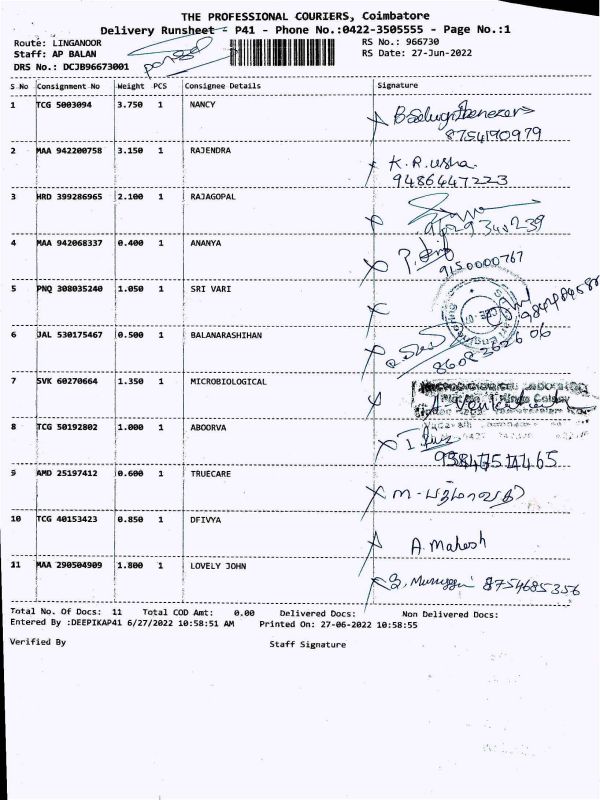 THE PROFESSIONAL COURIERS, Coimbatore
Delivery Runsheet - P41 - Phone No.:0422-3505555 - Page No.:1
Route: LINGANOOR
RS No.: 966730
Staff: AP BALAN
RS Date: 27-Jun-2022
DRS No.: DCJB96673001
S No Consignment No Weight PCS Consignee Details Signature
1 TCG 5003094 3.750 1 NANCY
8754190979
2 MAA 942200758 3.150 1 RAJENDRA K.R. usha
9486447223
3 HRD 399286965 2.100 1 RAJAGOPAL
4 MAA 942068337 0.400 1 ANANYA
9150000767
5 PNQ 308035240 1.050 1 SRI VARI
6 JAL 530175467 0.500 1 BALANARASHIHAN
7 SVK 60270664 1.350 1 MICROBIOLOGICAL
8 TCG 50192802 1.000 1 ABOORVA
9 AMD 25197412 0.600 1 TRUECARE
10 TCG 40153423 0.850 1 DFIVYA A. Mahesh
11 MAA 290504909 1.800 1 LOVELY JOHN 8754685356
Total No. Of Docs: 11 Total COD Amt: 0.00 Delivered Docs: Non Delivered Docs:
Entered By :DEEPIKAP41 6/27/2022 10:58:51 AM Printed On: 27-06-2022 10:58:55
Verified By Staff Signature